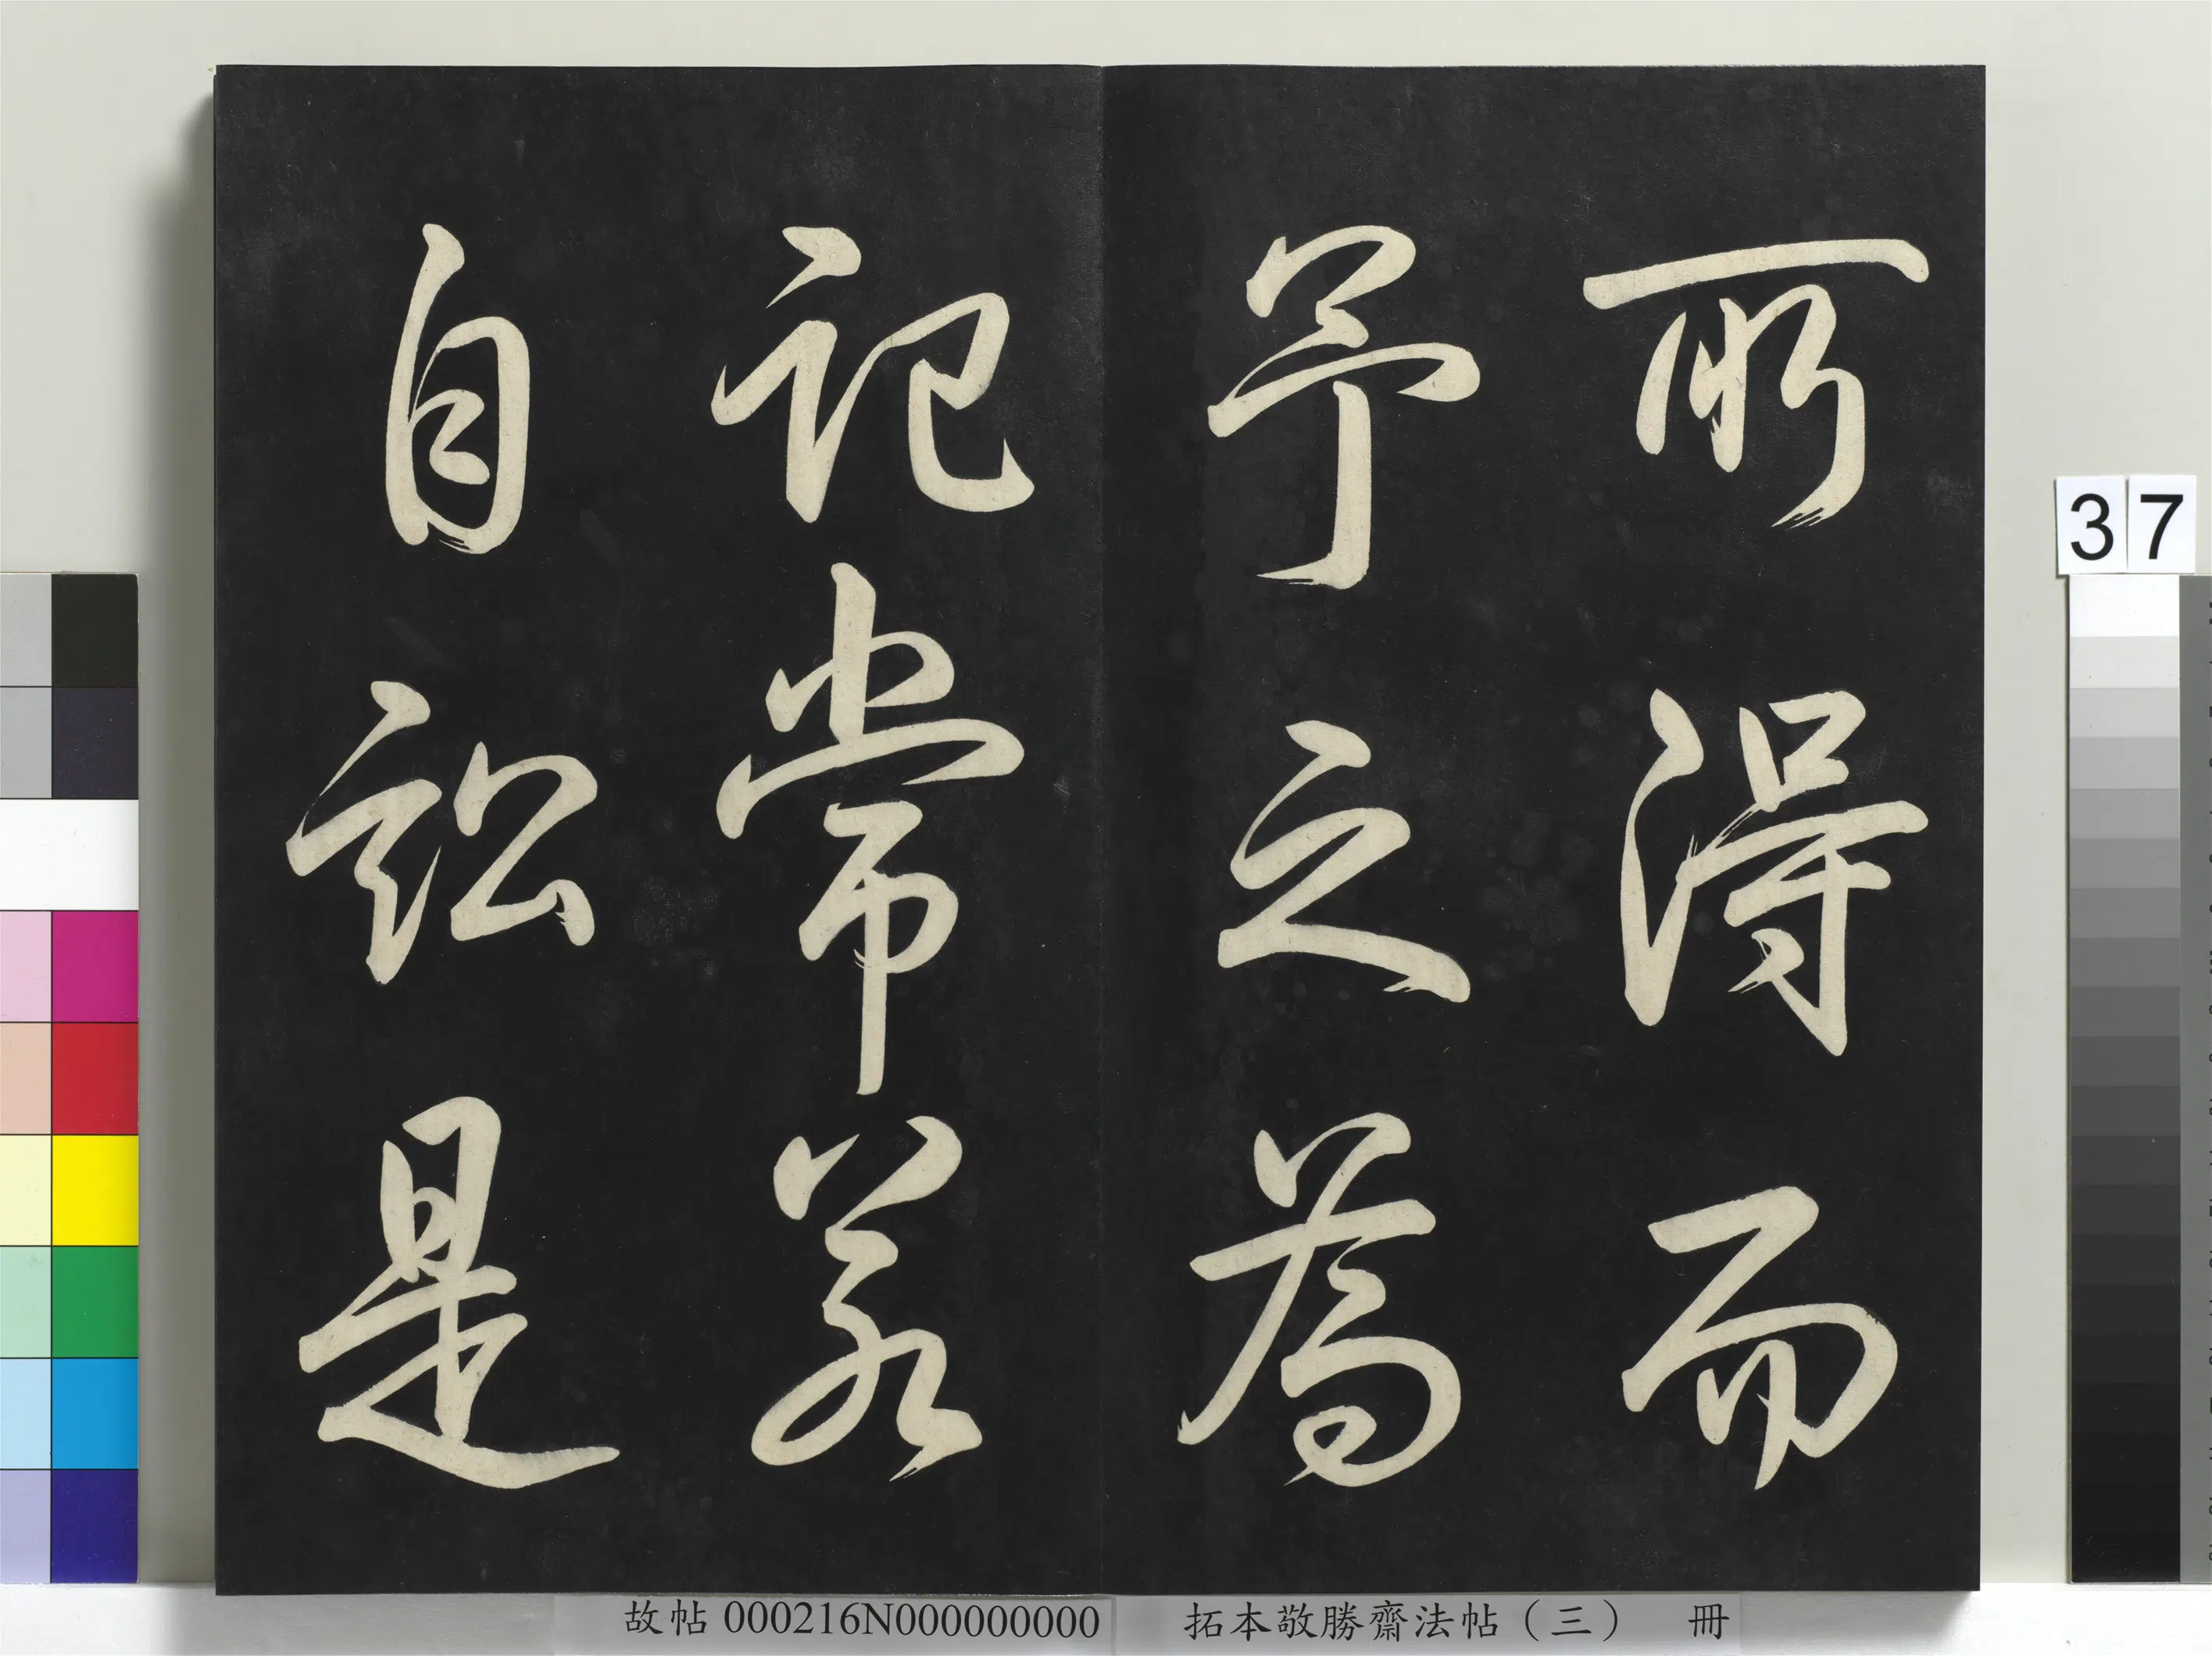 所得而
予之為
記常若
自訟是
37
故帖 000216N000000000 拓本敬勝齋法帖（三） 冊